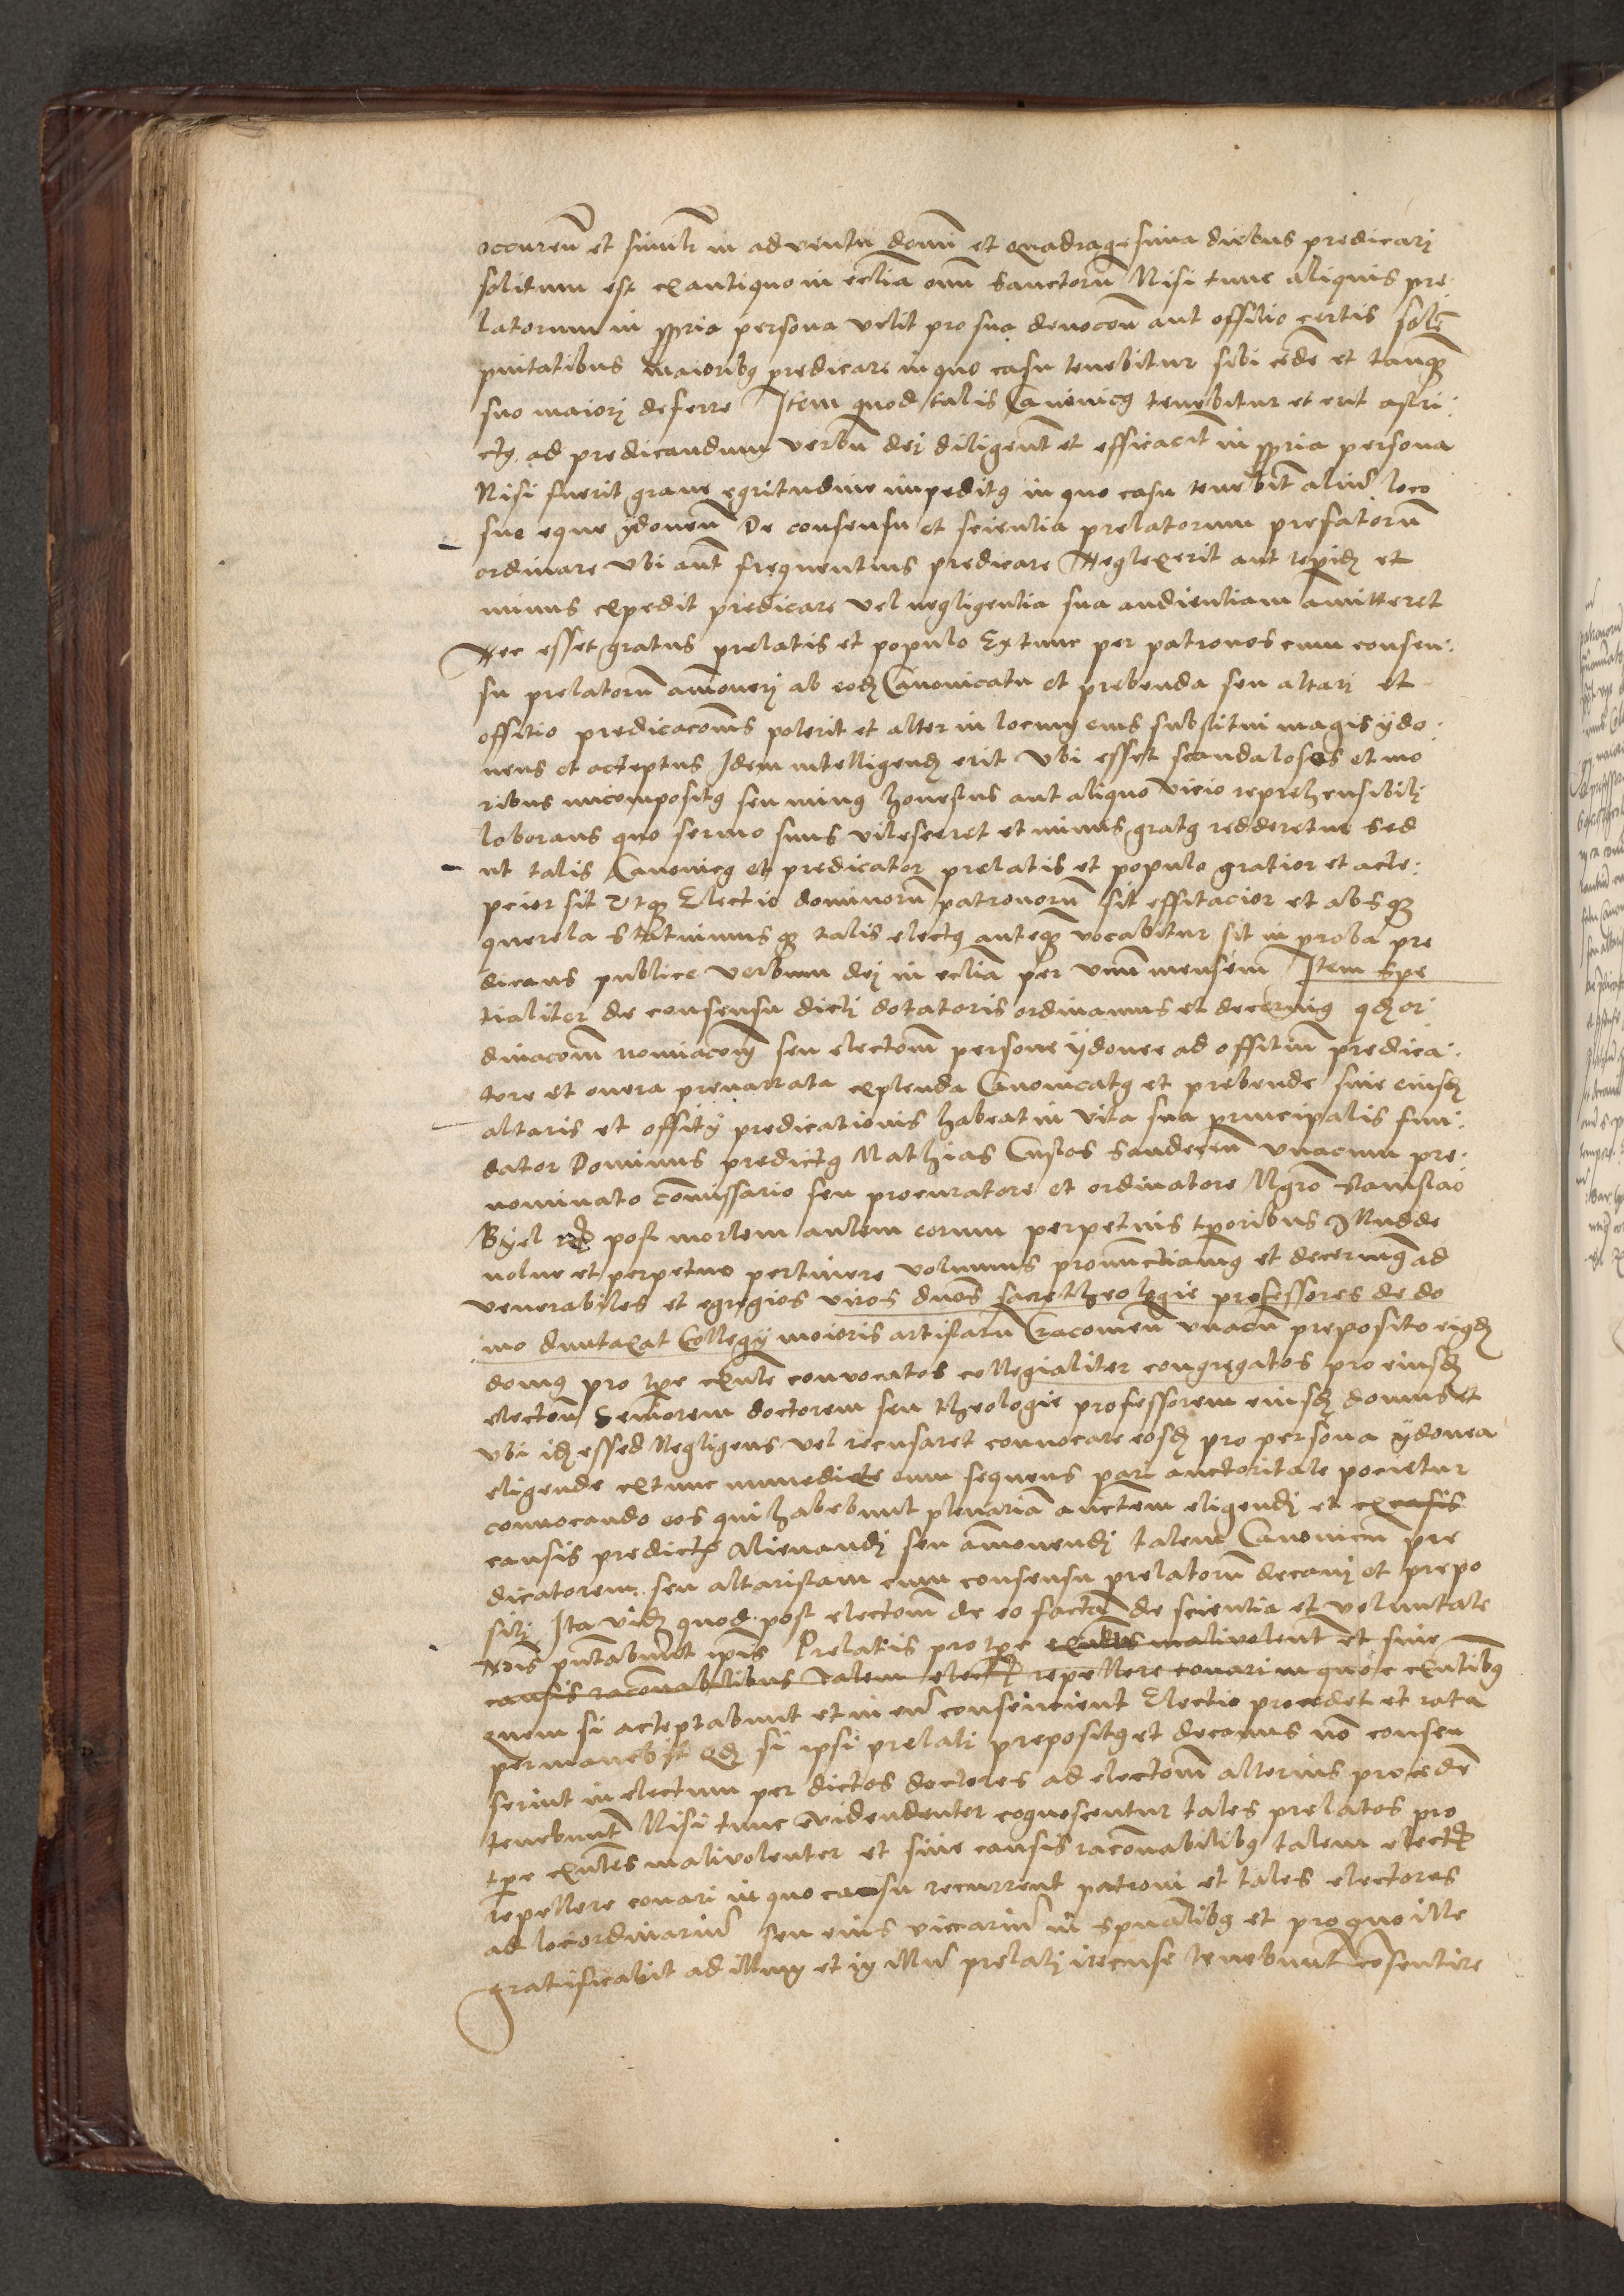 occuren̄ et simil̄r in adventu domī et quadragesima diebus predicarj
solitum est ex antiquo in ecl̄ia om̄ī Sanctorū Nisi tunc aliquis pre:
latorum in ꝓpria persona velit pro sua devocōn̄ aut offitio certis Solē
pnitatibus maioribꝰ predicare in quo casu tenebitur sibi cede et tanqꝫ
suo maiorj deferre Item quod talis Canonicꝰ tenebitur et erit astri:
ctꝰ ad predicandum verbū dej diligent̄ et efficacit̄ in ꝓpria persona
Nisi fuerit grave egritudine impeditꝰ in quo casu tenebit̄ aliū loco
suo eque ydoneū De consensu et scientia prelatorum prefatorū
ordinare Vbi aut̄ frequentius predicare Neglexerit aut tepidꝫ et
minus expedit predicare vel negligentia sua audientiam amitteret
Nec esset gratus prelatis et populo Extunc per patronos cum consen:
su prelatorū amoverj ab eodꝫ Canonicatu et prebenda seu altari et
offitio predicacōnis poterit et alter in locum eius substitui magis ydo:
neus et acteptus Idem intelligendꝫ erit Vbi esset scandalosos et mo
ribus incompositꝰ seu minꝰ honestus aut aliquo vicio reprehensibilj
laborans quo sermo suus vilesceret et minus gratꝰ redderetur Sed
ut talis Canonicꝰ et predicator prelatis et populo gratior et acte:
pcior sit Vtqꝫ Electio dominorū patronorū sit effitacior et absqꝫ
querela Statuimus qꝫ talis electꝰ anteqꝫ vocabitur sit in proba pre
dicans publice verbum dej in ecl̄ia per vnū mensem Item Spe
tialiter de consensu dicti dotatoris ordinamus et decernimꝰ qdꝫ or:
dinacōm nomīacōm seu electōm persone ydonee ad offitiū predica:
tore et onera prenarrata explenda Canonicatꝰ et prebende sive eiusdꝫ
altaris et offitÿ predicationis habeat in vita sua principalis fun:
dator Dominus predictꝰ Mathias Custos Sandecen̄ vnacum pre:
nominato Com̄issario seu procuratore et ordinatore Mgr̄o Stanislao
Byel post mortem autem eorum perpetuis tꝑoribus
volue et perpetuo pertinere volumus pronunctiamꝰ et decernimꝰ ad
venerabiles et egregios viros dnōs sacre theologie professores de do
mo duntaxat Collegÿ maioris artistarū Cracovien̄ vnacū preposito eiꝰdꝫ
domꝰ pro tꝑe exn̄te convocatos collegialiter congregatos pro eiusdꝫ
electōn̄ Seniorem doctorem seu theologie professorem eiusdꝫ domus Et
vbi idꝫ essed Negligens vel recusaret convocare eosdꝫ pro persona ydonea
eligende extunc immediate eum sequens pari auctoritate pocietur
convocando eos qui habebunt plenariā auctem eligendj et ex casis
causis predictꝭ Alienandj seu ammovendj talem Canonicū pre
dicatorem seu altaristam cum consensu prelatorū decanj et prepo
sitj Ita vidꝫ quod post electōm de eo factā de scientia et voluntate
pn̄tabunt ipīs Prelatis pro tꝑe exn̄tes malivolent̄ et sine
causis racōnabilibus talem electū repellere conari in quo c exn̄tibꝰ
quem si acteptabunt et in eū consencient Electio procedet et rata
permanebit Qdꝫ si ipsi prelati prepositꝰ et decanus nō consen
serint in electum per dictos doctores ad electōm alterius procedē
tenebunt̄ Nisi tunc evidendenter cognoscentur tales prelatos pro
tꝑe exn̄tes malivolenter et sine causis racōnabilibꝰ talem electū
repellere conari in quo casu recurrent patroni et tales electores
ad loc ordinariū seu eius viccariū in spūalibꝰ et pro quo ille
gratificabit ad illum et in illū prelatj irecuse tenebunt̄ cōsentire